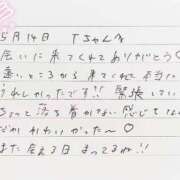 5月14日 Tちゃん
会いに来てくれてありがとう♡
遠いところから来てくれて本当に
うれしかったです!! 緊張してい
ちょっと落ち着かない感じもな
だかかわいかった〜♡
また会える日まってるね!!